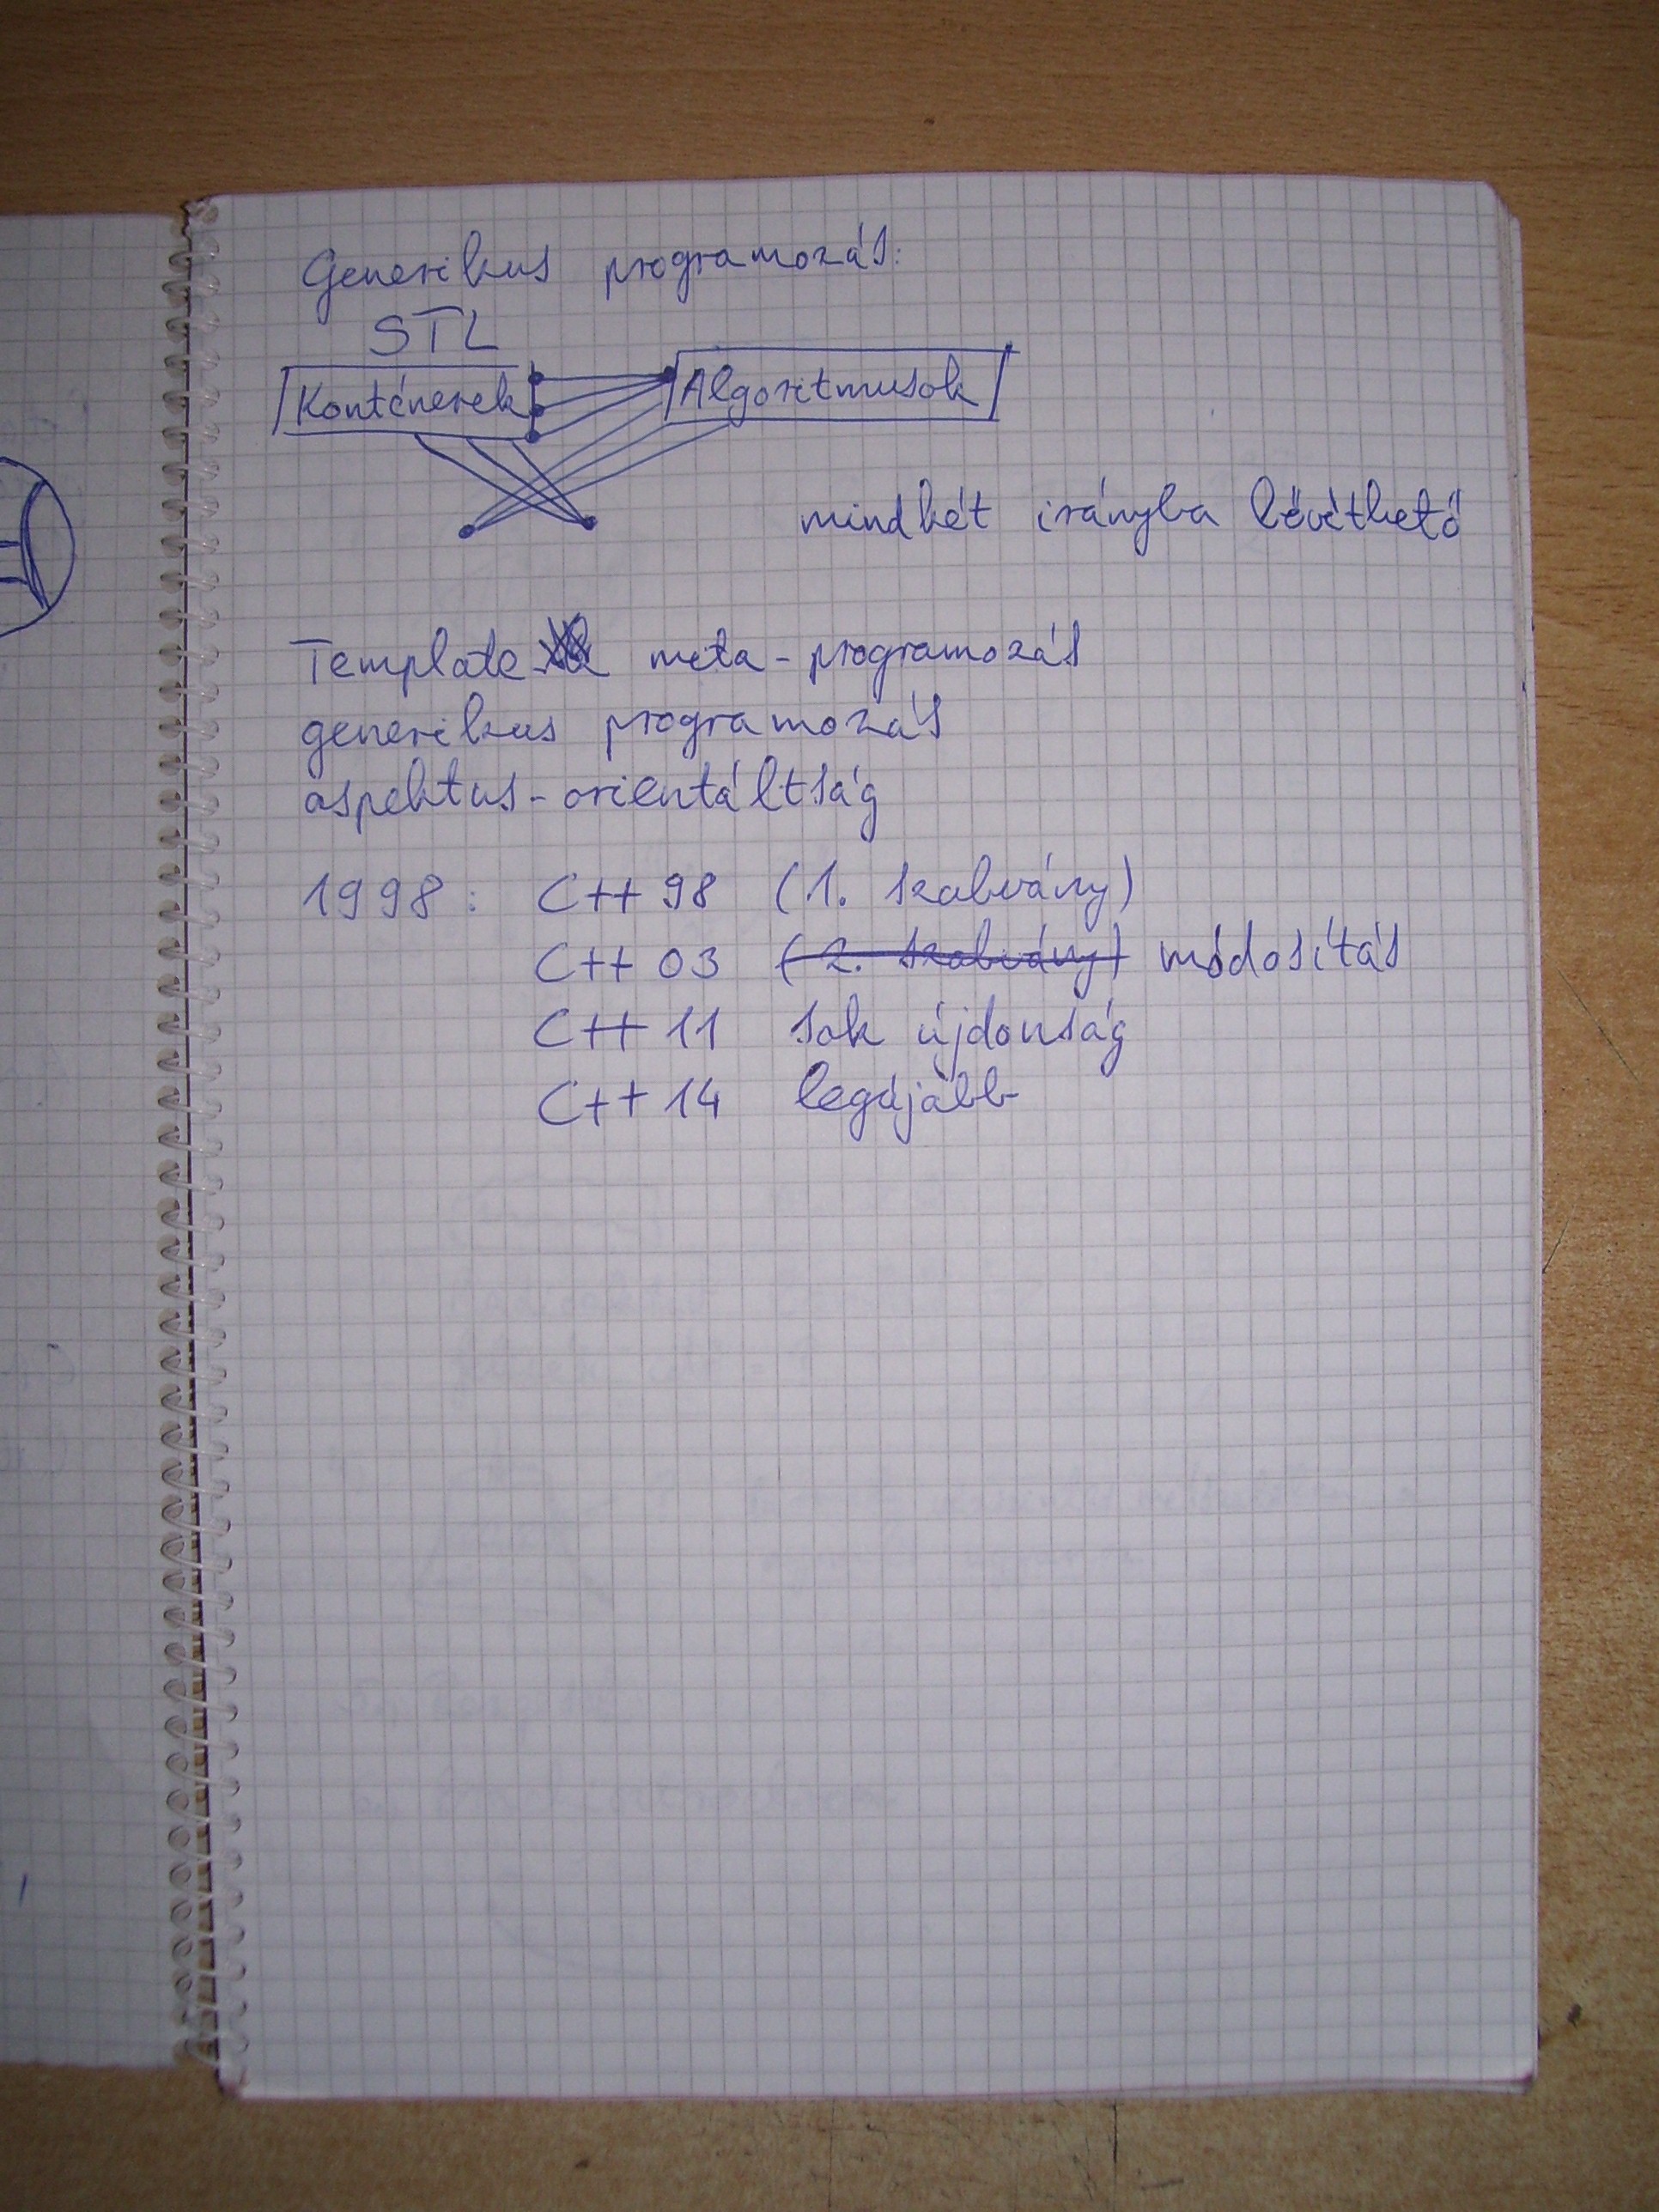 Generikus programozás:
STL
Konténerek Algoritmusok
mindkét irányba bővíthető
Template meta-programozás
generikus programozás
aspektus-orientáltság
1998: C++98 (1. szabvány)
C++03 (2. szabvány) módosítás
C++11 sok újdonság
C++14 legújabb